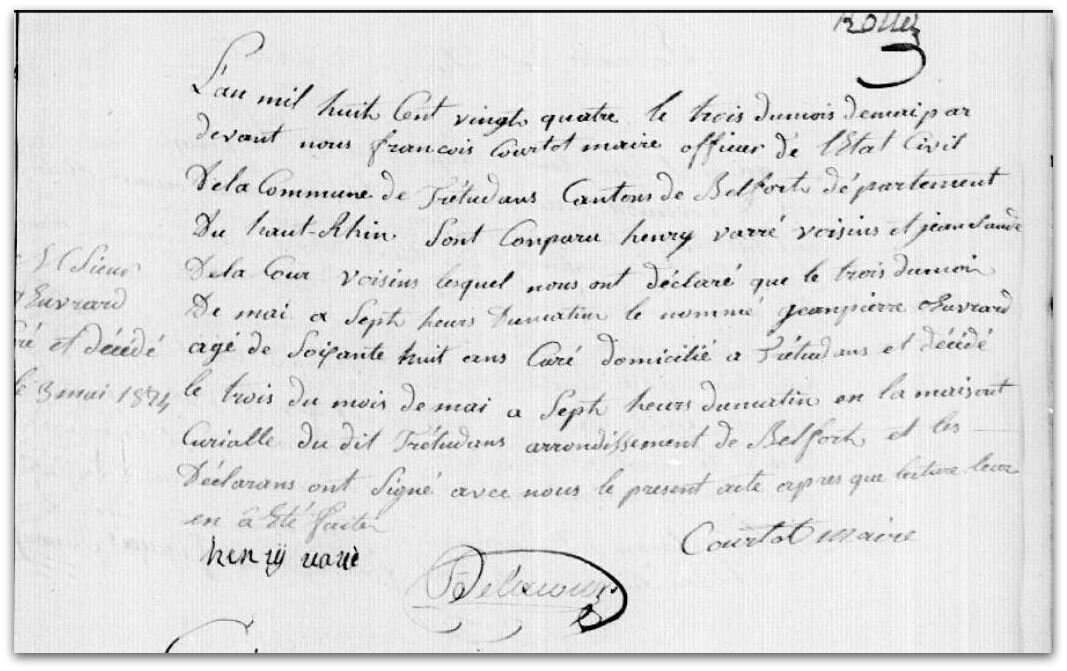 L'an mil huit Cent vingt quatre le trois dumois demai par
devant nous françois Courtot maire officier de l'Etat Civil
Dela Commune de Trétudans Cantons de Belfort département
Du haut-Rhin Sont Conparu henry varré voisins et jean claude
Dela Cour voisins lesquel nous ont déclaré que le trois dumoin
De mai a Septh heurs Dumatin le nommé jeanpierre Euvrard
agé de Soixante huit ans Curé domicilié a Trétudans et décédé
le trois du mois de mai a Septh heurs dumatin en la maisont
Curialle du dit Trétudans arrondissement de Belforth et les
Déclarans ont Signé avec nous le present acte apres que lecture leur
en â Eté faite
Sieur
Euvrard
et décédé
le 3 mai 1824
Courtot maire
henrÿ varré
Delacour